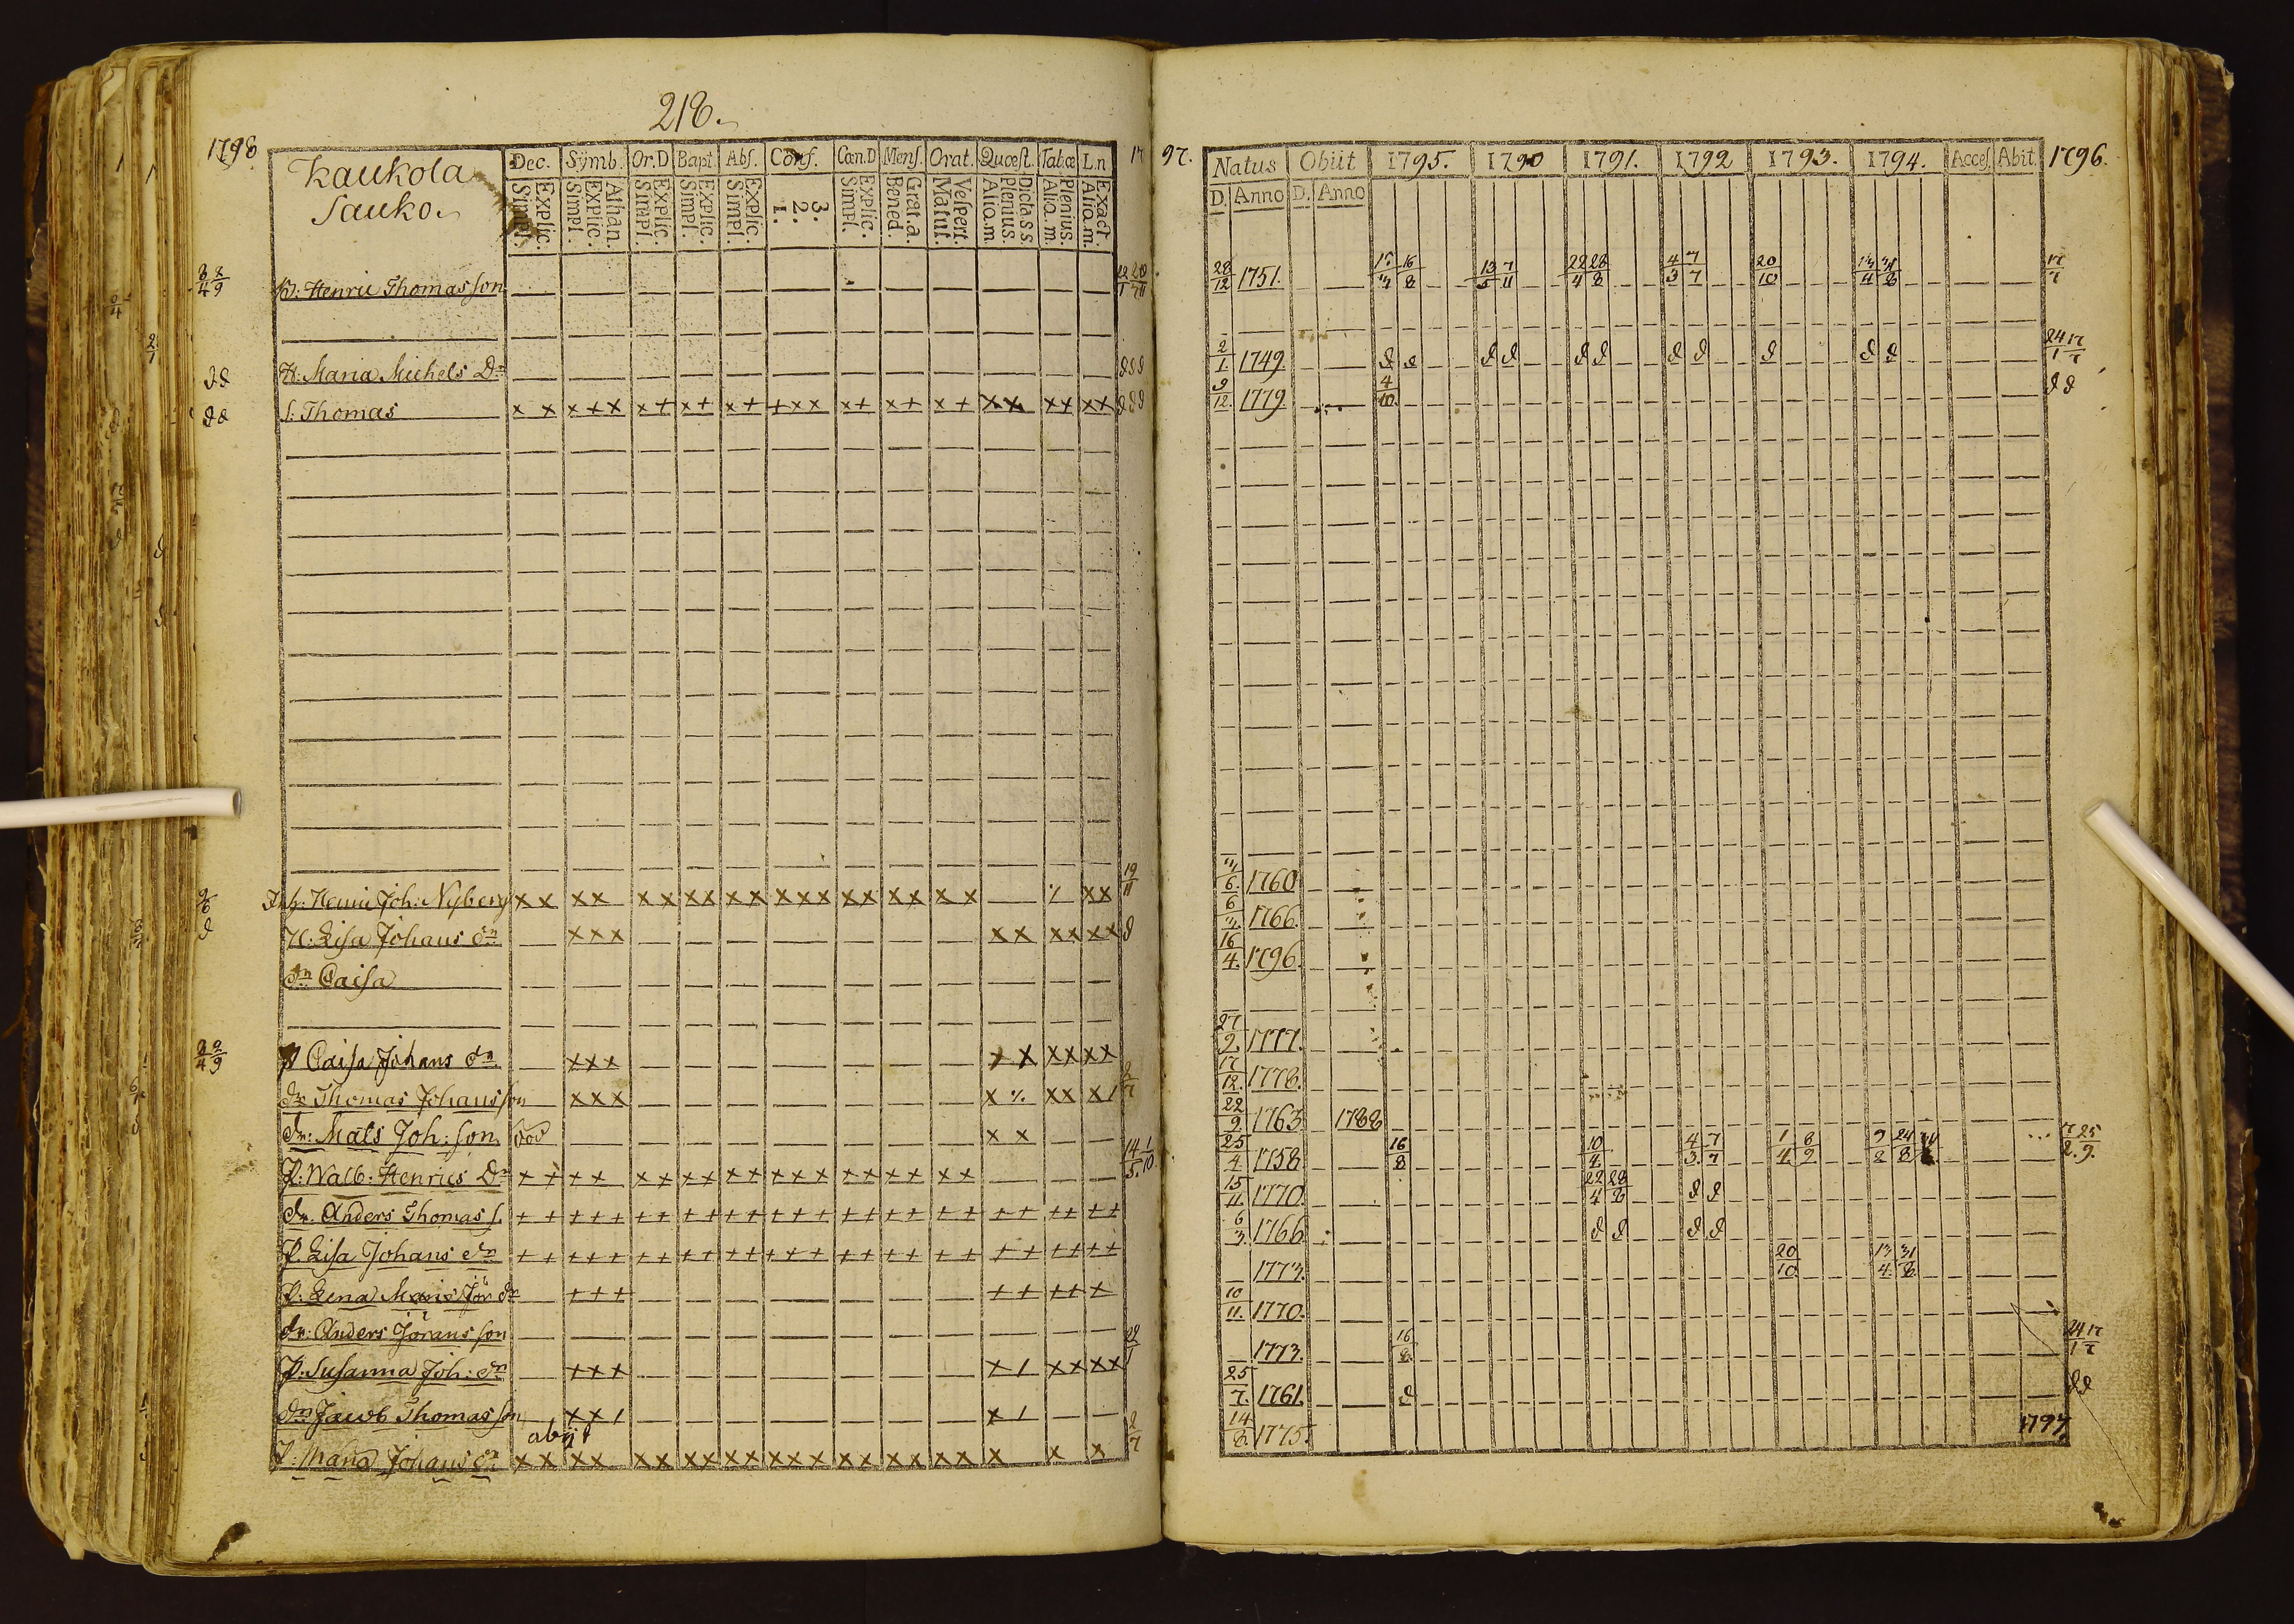 218.
1798
Kaukola
Sauko.
Dec. Symb. Or.D Bapt. Abs. Conf. Cœn.D Mens. Orat. Quæst. Tab.œ L.n
Explic. Simpl. Athan. Explic. Simpl. Explic. Simpl. Explic. Simpl. Explic. Simpl. 3. 2. 1. Explic. Simpl. Grat. a. Bened. Vespert. Matut. Dicla s s Plenius. Alio. m. Plenius. Alio. m. Exact. Alio. m.
17 97.
Natus Obiit 1795. 1790 1791. 1792 1793. 1794. Acces. Abit. 1796.
D. Anno D. Anno
B: Henric Thomasson 28/12 1751. 13/5 7/11 22/4 28/8 4/3 7/7 20/10
H: Maria Michels Dr 2/1. 1749.
S: Thomas x x x x x x + x + x + + x x x + x + x + x x x x x + 9/12. 1779. 4/10.
Inh: Henric Joh: Nyberg x x x x x x x x x x x x x x x x x x x ٪ x x 19/11 6. 1760
H: Lisa Johans dr x x x x x x x x x 6 1766.
dr Caisa 16/4. 1796.
P Caisa Johans dr x x x x x x x x x 27/9. 1777.
dr Thomas Johansson x x x x ٪ x x x / 2/7 17/12. 1778.
dr: Mats Joh: son död x x 22/9 1763 1788
P: Walb: Henrics Dr + + + + x x x x x x x x x x x x x x x 14/5. 1/10 25/4. 1758 16/8 10/4. 4/3. 7/7 1/4 8/9
dr. Anders Thomas s. + + + + + + + + + + + + + + + + + + + + + + + + + 15/11. 1770. 22/4 28/8
P. Lisa Johans dr + + + + + + + + + + + + + + + + + + + + + + + + + 6/3. 1766
P: Lena Maris Jör dr + + + + + + + + 1773. 20/10. 13/4. 31/8.
dr: Anders Jöransson 10/11. 1770.
P: Susanna Joh: dr x x x x / x x x x 1773. 16/8. 24/1 17/7
dr Jacob Thomasson x x / x / 25/7. 1761.
abiit
P: Maria Johans dr x x x x x x x x x x x x x x x x x x x x x x 2/7 14/8. 1775. 1797.